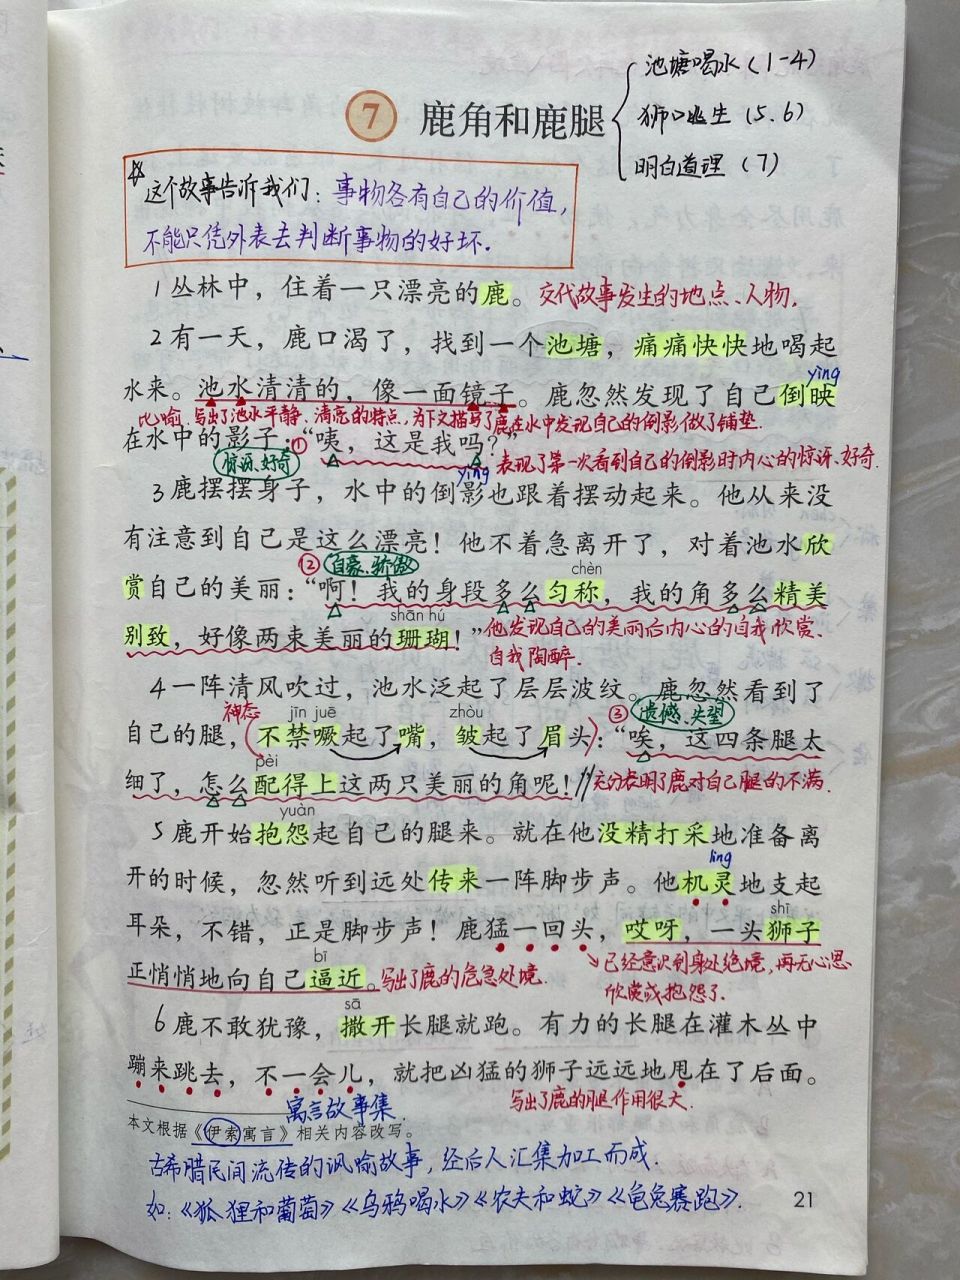 7 鹿角和鹿腿
池塘喝水(1-4)
狮口逃生(5.6)
明白道理(7)
这个故事告诉我们:事物各有自己的价值,
不能只凭外表去判断事物的好坏.
1丛林中,住着一只漂亮的鹿。交代故事发生的地点、人物.
2有一天,鹿口渴了,找到一个池塘,痛痛快快地喝起
yìng
水来。池水清清的,像一面镜子。鹿忽然发现了自己倒映
比喻.写出了池水平静、清亮的特点,为下文描写了鹿在水中发现自己的倒影做了铺垫.
在水中的影子:①“咦,这是我吗?”
惊讶、好奇
表现了第一次看到自己的倒影时内心的惊讶、好奇.
yǐng
3鹿摆摆身子,水中的倒影也跟着摆动起来。他从来没
有注意到自己是这么漂亮!他不着急离开了,对着池水欣
②自豪、骄傲
chèn
赏自己的美丽:“啊!我的身段多么匀称,我的角多么精美
shān hú
别致,好像两束美丽的珊瑚!”他发现自己的美丽后内心的自我欣赏、
自我陶醉.
4一阵清风吹过,池水泛起了层层波纹。鹿忽然看到了
神态 jīn juē zhòu ③遗憾、失望
自己的腿,不禁噘起了嘴,皱起了眉头:“唉,这四条腿太
pèi
细了,怎么配得上这两只美丽的角呢!充分表明了鹿对自己腿的不满.
yuàn
5鹿开始抱怨起自己的腿来。就在他没精打采地准备离
líng
开的时候,忽然听到远处传来一阵脚步声。他机灵地支起
shī
耳朵,不错,正是脚步声!鹿猛一回头,哎呀,一头狮子
bī
正悄悄地向自己逼近。写出了鹿的危急处境.
已经意识到身处绝境,再无心思
欣赏或抱怨了.
sā
6鹿不敢犹豫,撒开长腿就跑。有力的长腿在灌木丛中
蹦来跳去,不一会儿,就把凶猛的狮子远远地甩在了后面。
写出了鹿的腿作用很大.
寓言故事集.
本文根据《伊索寓言》相关内容改写。
古希腊民间流传的讽喻故事,经后人汇集加工而成.
如:《狐狸和葡萄》《乌鸦喝水》《农夫和蛇》《龟兔赛跑》.
21